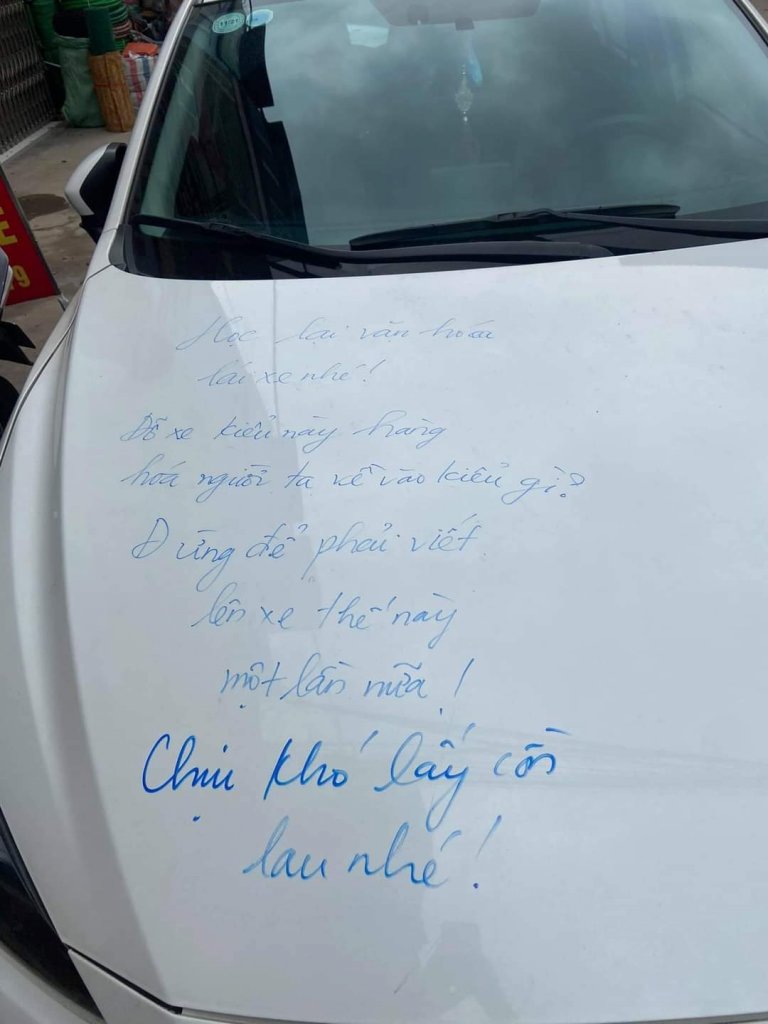 Học lại văn hóa
lái xe nhé!
Đỗ xe kiểu này hàng
hoá người ta về vào kiểu gì?
Đừng để phải viết
lên xe thế này
một lần nữa!
Chịu khó lấy cồn
lau nhé!
E
9